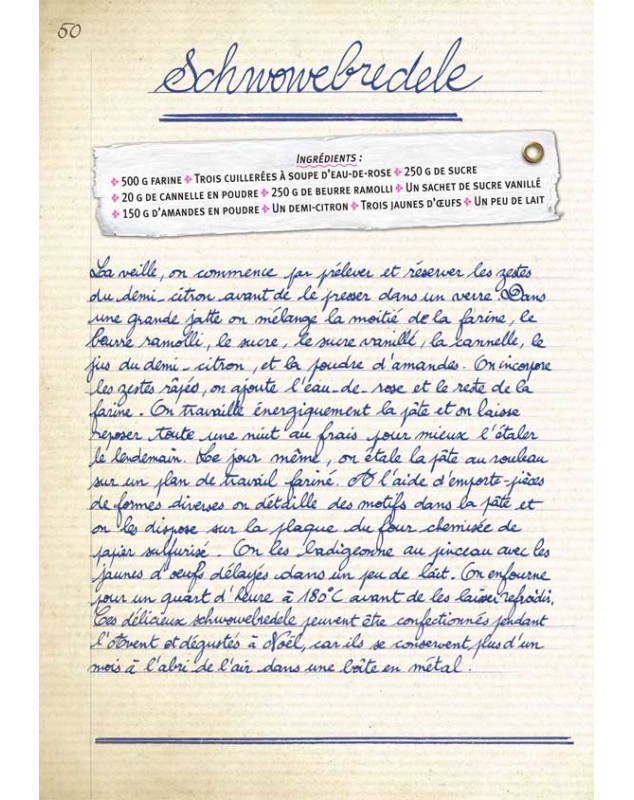 50
Schwowebredele
Ingrédients :
500 g farine Trois cuillerées à soupe d'eau-de-rose 250 g de sucre
20 g de cannelle en poudre 250 g de beurre ramolli Un sachet de sucre vanillé
150 g d'amandes en poudre Un demi-citron Trois jaunes d'œufs Un peu de lait
La veille, on commence par prélever et réserver les zestes
du demi-citron avant de le presser dans un verre. Dans
une grande jatte on mélange la moitié de la farine, le
beurre ramolli, le sucre, le sucre vanillé, la cannelle, le
jus du demi-citron, et la poudre d'amandes. On incorpore
les zestes râpés, on ajoute l'eau-de-rose et le reste de la
farine. On travaille énergiquement la pâte et on laisse
reposer toute une nuit au frais pour mieux l'étaler
le lendemain. Le jour même, on étale la pâte au rouleau
sur un plan de travail fariné. A l'aide d'emporte-pièces
de formes diverses on détaille des motifs dans la pâte et
on les dispose sur la plaque du four chemisée de
papier sulfurisé. On les badigeonne au pinceau avec les
jaunes d'oeufs délayés dans un peu de lait. On enfourne
pour un quart d'heure à 180°C avant de les laisser refroidir.
Ces délicieux schwowebredele peuvent être confectionnés pendant
l'Avent et dégustés à Noël, car ils se conservent plus d'un
mois à l'abri de l'air dans une boîte en métal.